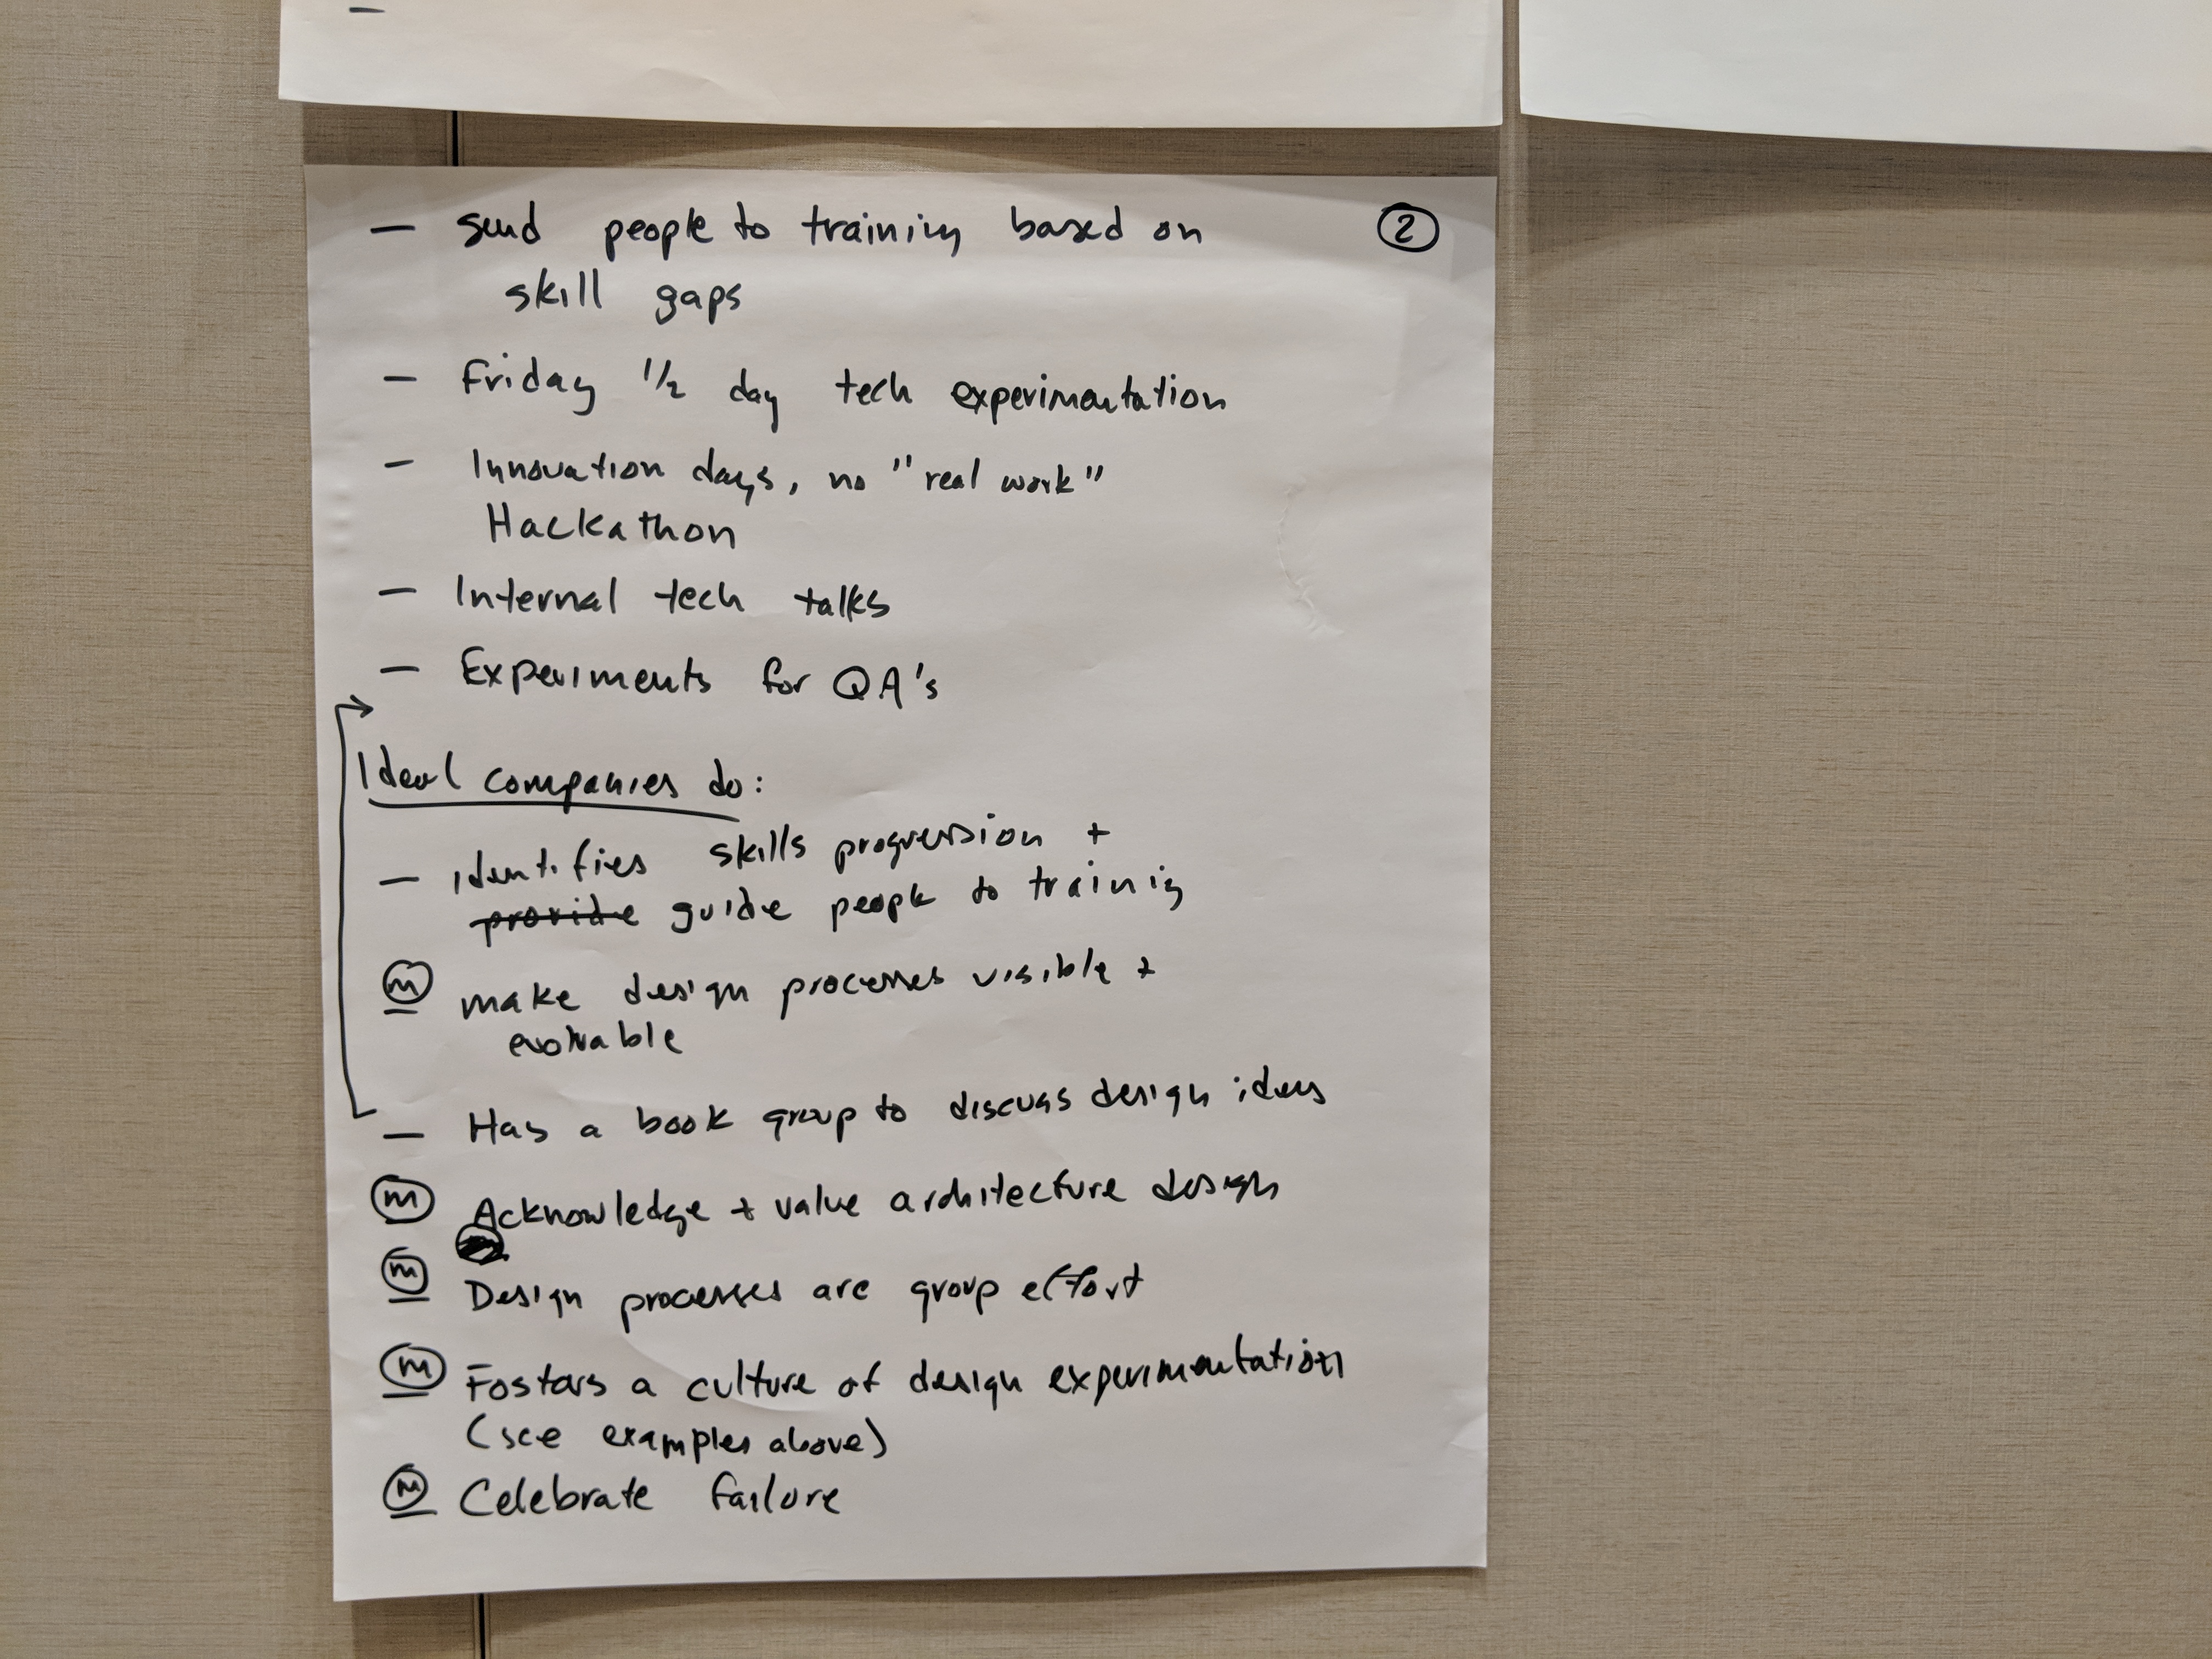 —
— Send people to training based on ②
skill gaps
— Friday 1/2 day tech experimentation
— Innovation days, no "real work"
Hackathon
— Internal tech talks
— Experiments for QA's
Ideal companies do:
— Identifies skills progression +
provide guide people to training
Ⓜ make design processes visible +
evolvable
— Has a book group to discuss design ideas
Ⓜ Acknowledge + value architecture design
Ⓜ Design processes are group effort
Ⓜ Fosters a culture of design experimentation
(see examples above)
Ⓜ Celebrate failure